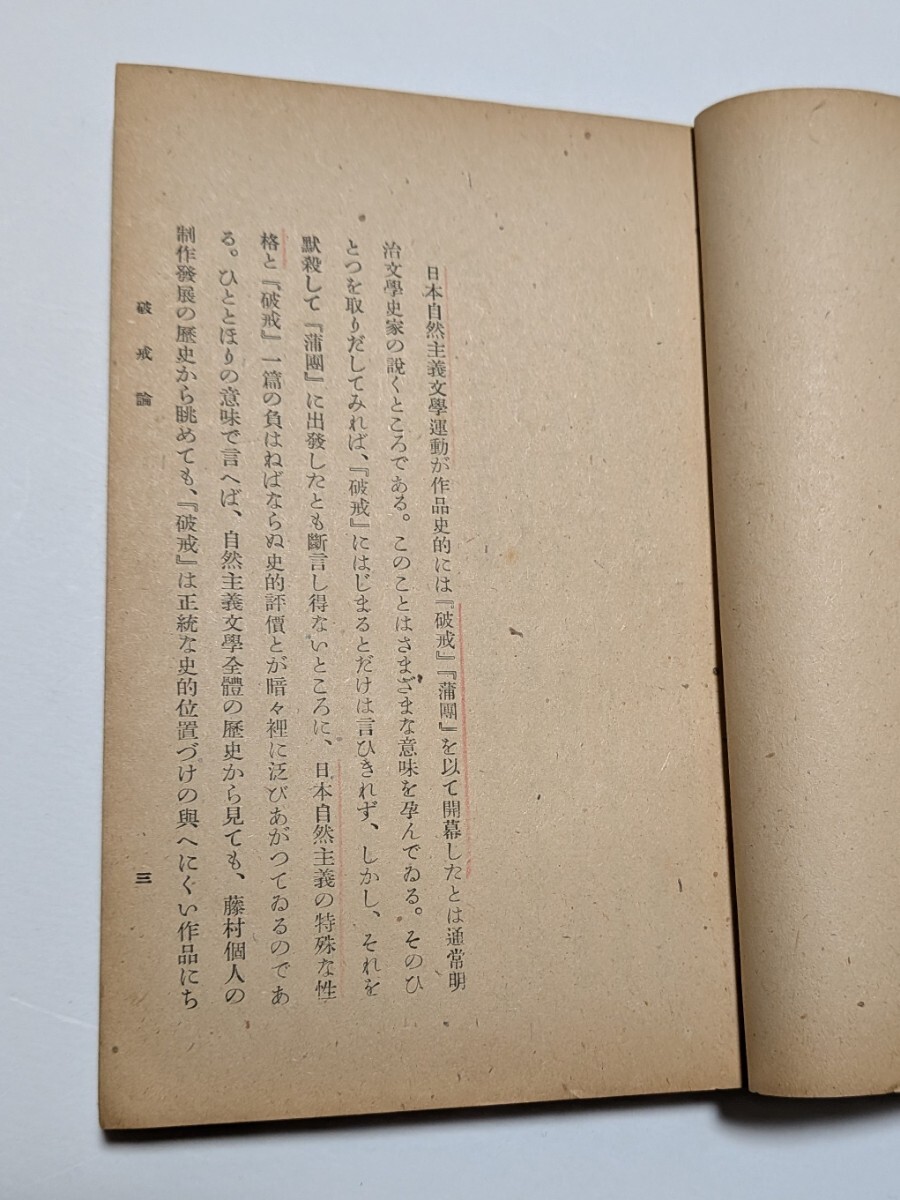 日本自然主義文學運動が作品史的には『破戒』『蒲團』を以て開幕したとは通常明
治文學史家の說くところである。このことはさまざまな意味を孕んでゐる。そのひ
とつを取りだしてみれば、『破戒』にはじまるとだけは言ひきれず、しかし、それを
默殺して『蒲團』に出發したとも斷言し得ないところに、日本自然主義の特殊な性
格と『破戒』一篇の負はねばならぬ史的評價とが暗々裡に泛びあがつてゐるのであ
る。ひととほりの意味で言へば、自然主義文學全體の歷史から見ても、藤村個人の
制作發展の歷史から眺めても、『破戒』は正統な史的位置づけの與へにぐい作品にち
破戒論
三